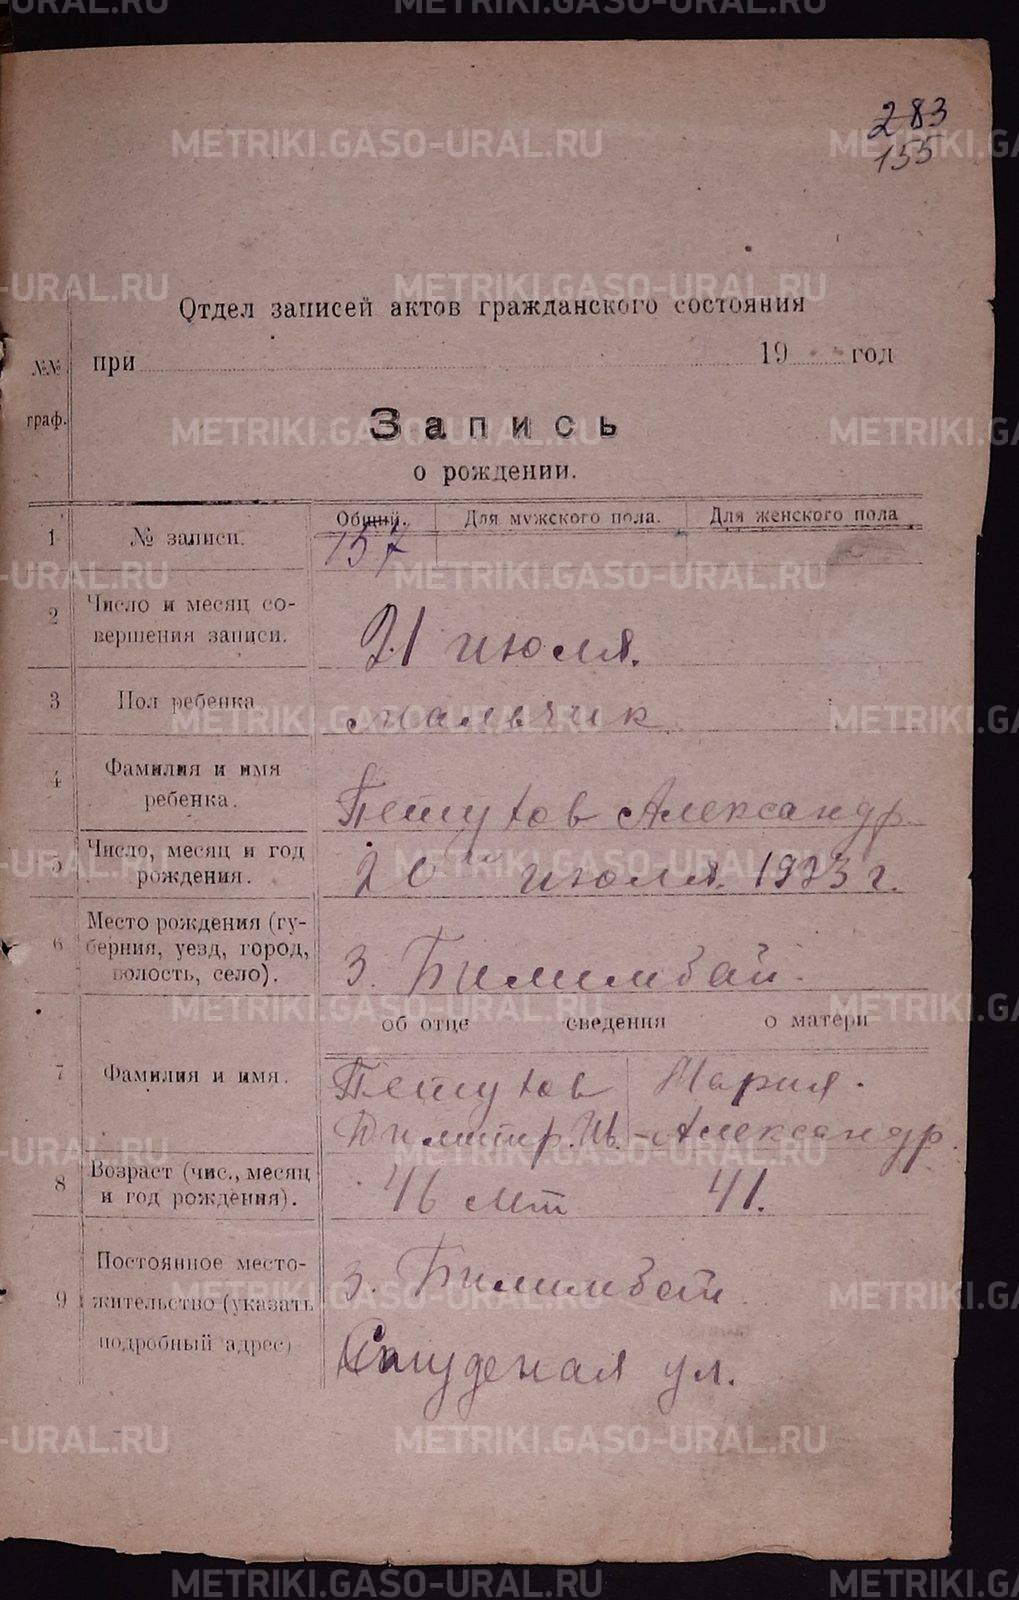 283
155
Отдел записей актов гражданского состояния
№№ граф.
при 19 год
Запись
о рождении.
Общий. Для мужского пола. Для женского пола
1 № записи. 157
2 Число и месяц со-
вершения записи. 21 июля.
3 Пол ребенка мальчик
4 Фамилия и имя
ребенка. Петухов Александр
5 Число, месяц и год
рождения. 20 июля 1923 г.
6 Место рождения (гу-
берния, уезд, город,
волость, село). З. Билимбай.
об отце сведения о матери
7 Фамилия и имя. Петухов Мария
Димитр. Ив. Александр.
8 Возраст (чис., месяц
и год рождения). 46 лет 41.
9 Постоянное место-
жительство (указать
подробный адрес) З. Билимбай
Студеная ул.
METRIKI.GASO-URAL.RU